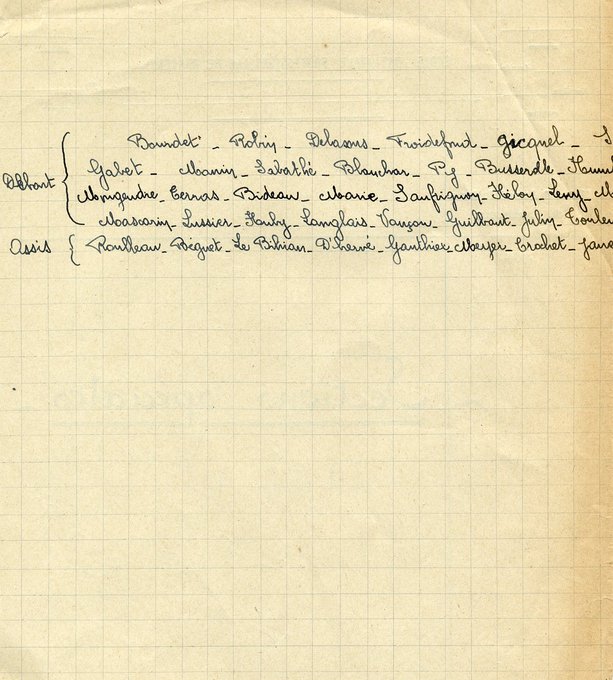 Bourdet - Robin - Delasous - Froidefond - Gicquel -
Debout { Gabet - Manin - Labarthé - Blanchar - Py - Busserolle -
Mongendre - Terras - Bideau - Marie - Saufrignon - Héloy - Levy -
Mascarin - Lussier - Hauby - Langlais - Vançon - Guilbaut - Julin -
Assis { Roulleau - Béguet - Le Bihian - D'hervé - Gauthier - Meyer - Crochet -